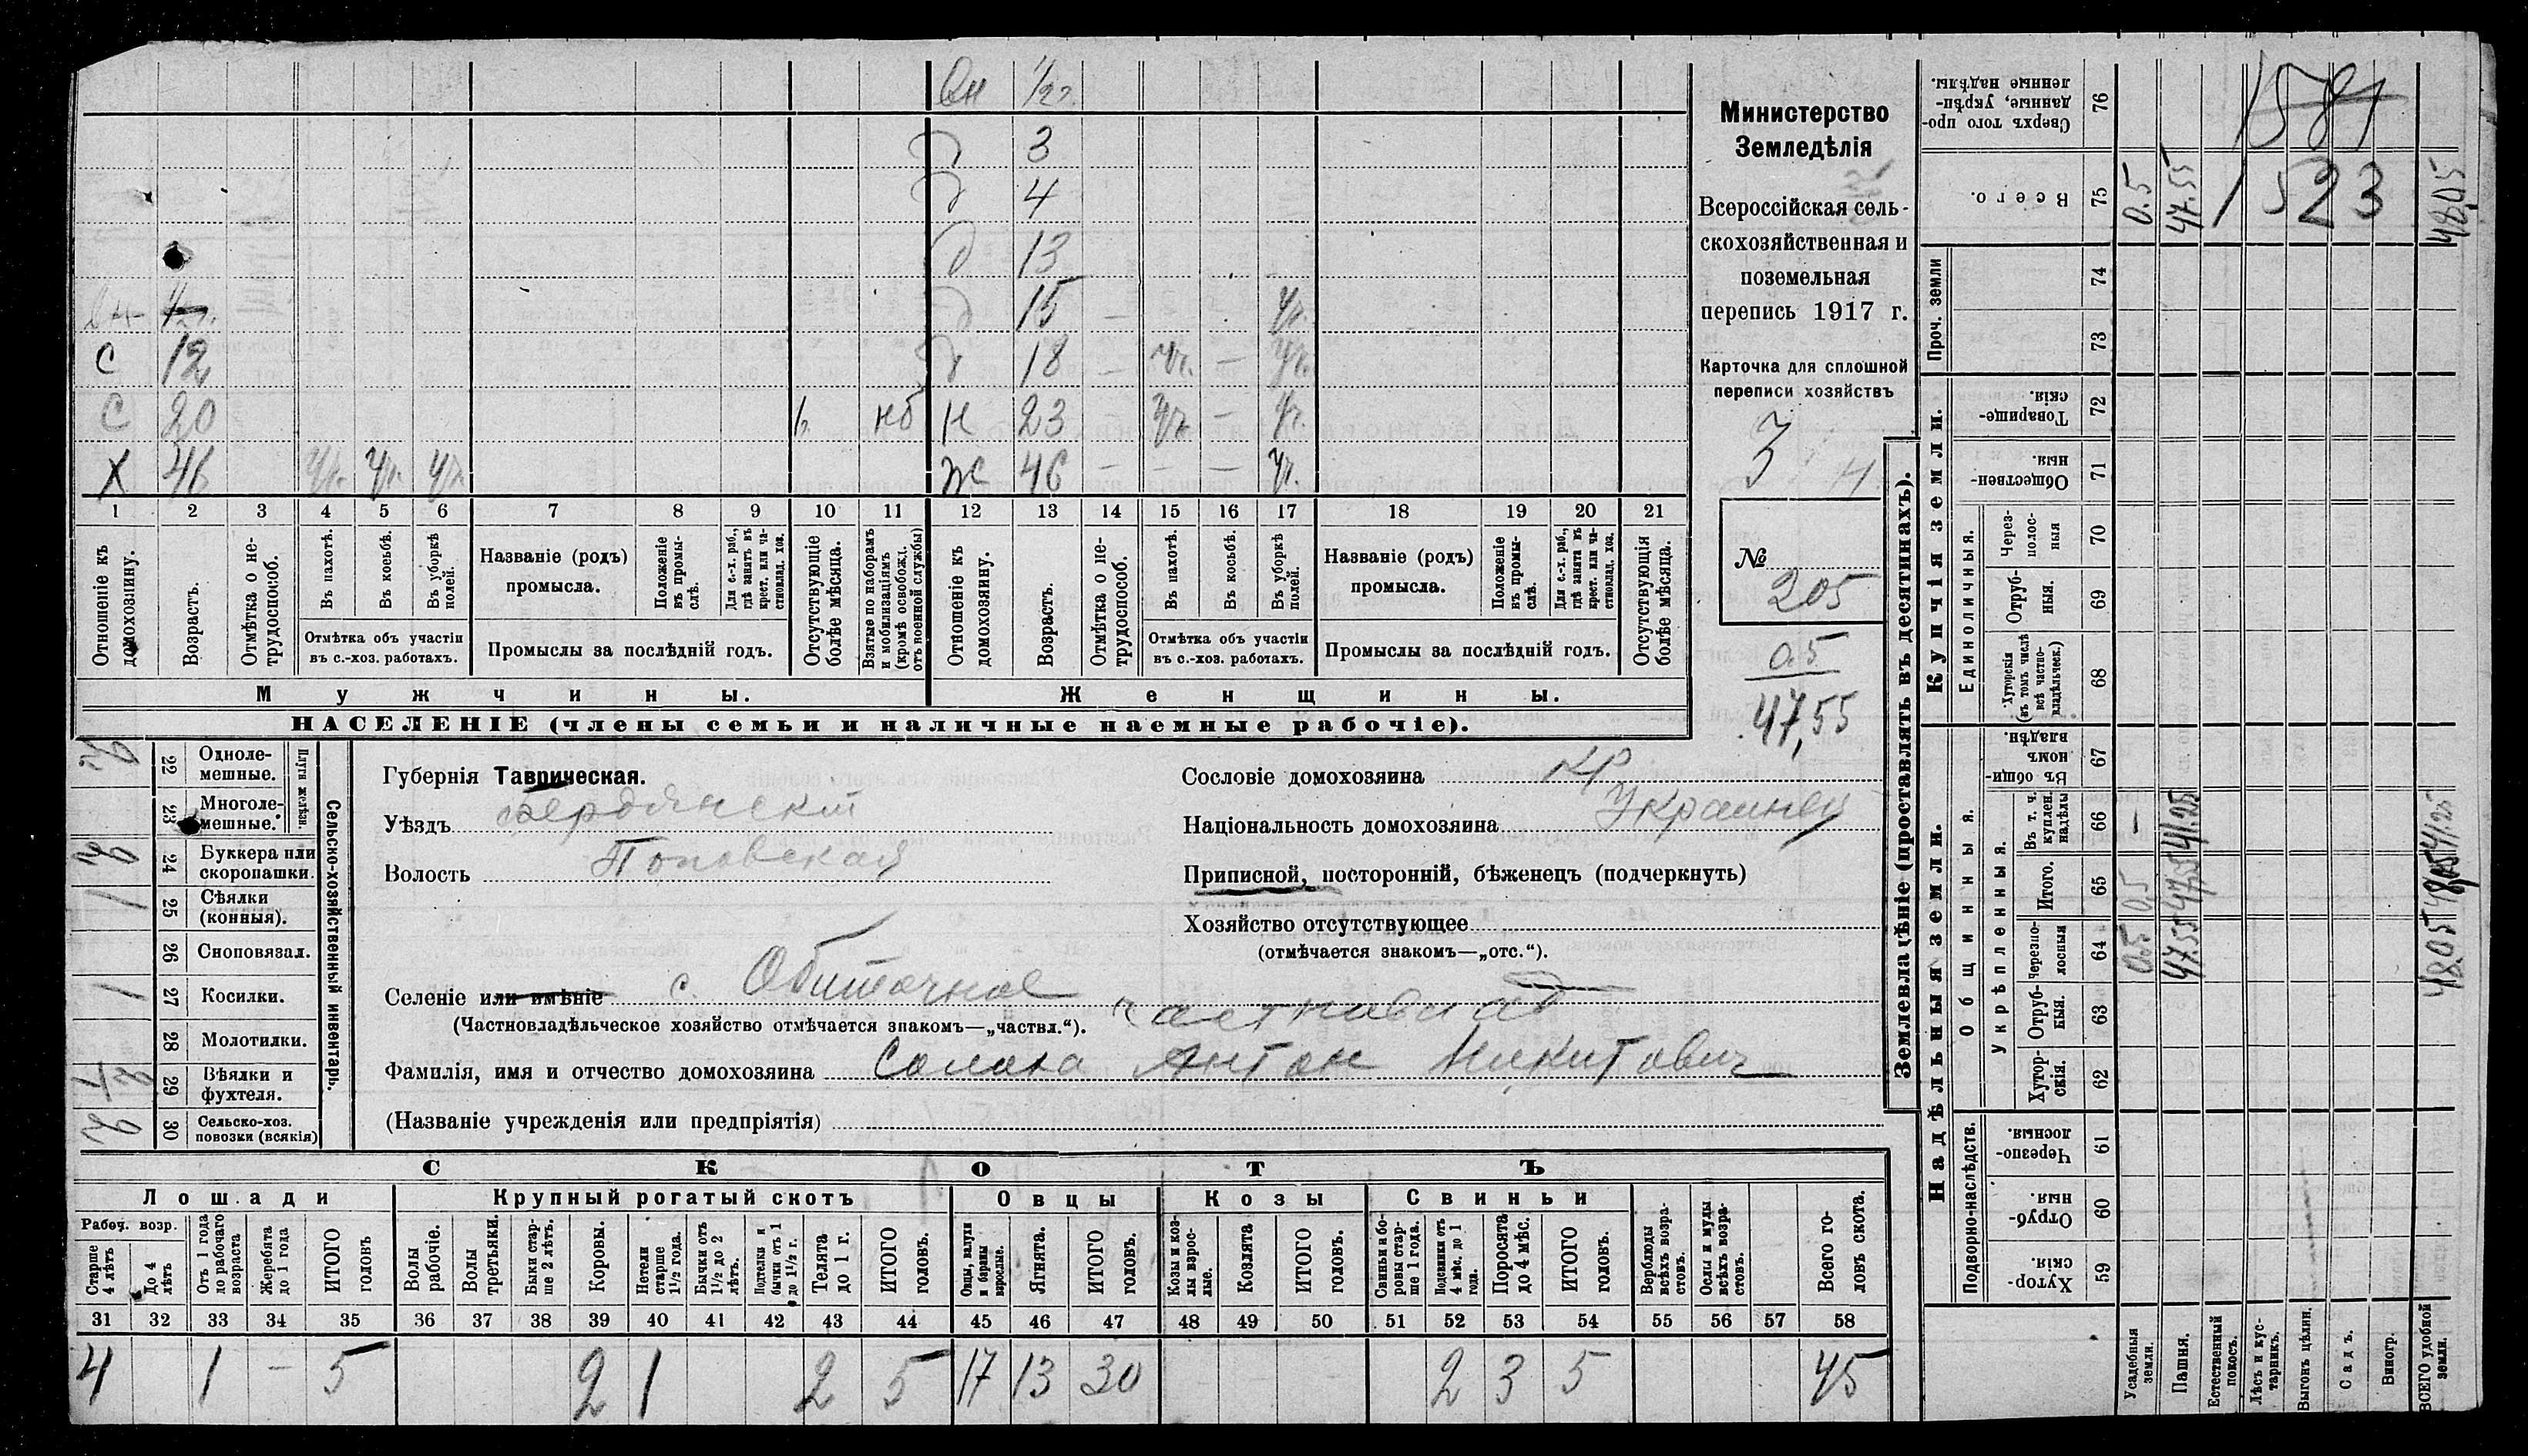 Вн 1/2 г.
3
4
13
15 — уч.
С 12 18 — уч. — уч.
С 20 нб Н 23 — уч. — уч.
Х 46 уч. уч. уч. Ж 46 — — — уч.
1 2 3 4 5 6 7 8 9 10 11 12 13 14 15 16 17 18 19 20 21
Отношеніе къ домохозяину.
Возрастъ.
Отмѣтка о нетрудоспособ.
Въ пахотѣ.
Въ косьбѣ.
Въ уборкѣ полей.
Отмѣтка объ участіи въ с.-хоз. работахъ.
Названіе (родъ) промысла.
Положеніе въ промыслѣ.
Для с.-х. раб., гдѣ занятъ въ крест. или частновлад. хоз.
Промыслы за послѣдній годъ.
Отсутствующіе болѣе мѣсяца.
Взятые по наборамъ и мобилизаціямъ (кромѣ освобожд. отъ военной службы)
Отношеніе къ домохозяину.
Возрастъ.
Отмѣтка о нетрудоспособ.
Въ пахотѣ.
Въ косьбѣ.
Въ уборкѣ полей.
Отмѣтка объ участіи въ с.-хоз. работахъ.
Названіе (родъ) промысла.
Положеніе въ промыслѣ.
Для с.-х. раб., гдѣ занята въ крест. или частновлад. хоз.
Промыслы за послѣдній годъ.
Отсутствующія болѣе мѣсяца.
Мужчины.
Женщины.
НАСЕЛЕНІЕ (члены семьи и наличные наемные рабочіе).
Министерство
Земледѣлія
Всероссійская сель-
скохозяйственная и
поземельная
перепись 1917 г.
Карточка для сплошной
переписи хозяйствъ
3
№
205
0.5
47,55
Сельско-хозяйственный инвентарь.
Плуги желѣзн.
22 Одноле-мешные.
23 Многоле-мешные.
24 Буккера или скоропашки.
1 25 Сѣялки (конныя).
26 Сноповязал.
1 27 Косилки.
28 Молотилки.
29 Вѣялки и фухтеля.
30 Сельско-хоз. повозки (всякія)
Губернія Таврическая.
Уѣздъ Бердянскій
Волость Поповская
Селеніе или имѣніе с. Обиточное
(Частновладѣльческое хозяйство отмѣчается знакомъ—„частвл.“).
Фамилія, имя и отчество домохозяина Солоха Антон Никитович
(Названіе учрежденія или предпріятія)
Сословіе домохозяина кр
Національность домохозяина Украинец
Приписной, посторонній, бѣженецъ (подчеркнуть)
Хозяйство отсутствующее
(отмѣчается знакомъ—„отс.“).
СКОТЪ
Лошади
Крупный рогатый скотъ
Овцы
Козы
Свиньи
Рабоч. возр.
Старше 4 лѣтъ
До 4 лѣтъ
Отъ 1 года до рабочаго возраста
Жеребята до 1 года
ИТОГО головъ
Волы рабочіе.
Волы третьяки.
Быки старше 2 лѣтъ.
Коровы.
Нетели старше 1 1/2 года.
Бычки отъ 1 1/2 до 2 лѣтъ.
Подтелки и бычки отъ 1 до 1 1/2 г.
Телята до 1 г.
ИТОГО головъ.
Овцы, валухи и бараны взрослые.
Ягнята.
ИТОГО головъ.
Козы и козлы взрослые.
Козлята
ИТОГО головъ.
Свиньи и боровы старше 1 года.
Подсвинки отъ 4 мѣс. до 1 года.
Поросята до 4 мѣс.
ИТОГО головъ.
Верблюды всѣхъ возрастовъ.
Ослы и мулы всѣхъ возрастовъ.
Всего головъ скота.
31 32 33 34 35 36 37 38 39 40 41 42 43 44 45 46 47 48 49 50 51 52 53 54 55 56 57 58
4 1 — 5 2 1 2 5 17 13 30 2 3 5 45
Землевладѣніе (проставлять въ десятинахъ).
Надѣльныя земли.
Купчія земли.
Проч. земли
Подворно-наслѣдств.
Общинныя.
Укрѣпленныя.
Единоличныя.
76 Сверхъ того проданные, укрѣпленные надѣлы.
75 Всего.
74
73
72 Товарищескія.
71 Общественныя.
70 Черезполосныя
69 Отрубныя.
68 Хуторскія (въ томъ числѣ всѣ частновладѣльческ.)
67 Въ общиномъ владѣн.
66 Въ т. ч. куплен. надѣлы
65 Итого.
64 Черезполосныя
63 Отрубныя.
62 Хуторскія.
61 Черезполосныя.
60 Отрубныя.
59 Хуторскія.
Усадебныя земли. 0.5 0.5 — 0.5
Пашня. 47.55 47.55 41.25 47.55
Естественный покосъ.
Лѣсъ и кустарникъ.
Выгонъ цѣлин.
Садъ.
Виногр.
ВСЕГО удобной земли. 48.05 48.05 41.25 48.05
1523